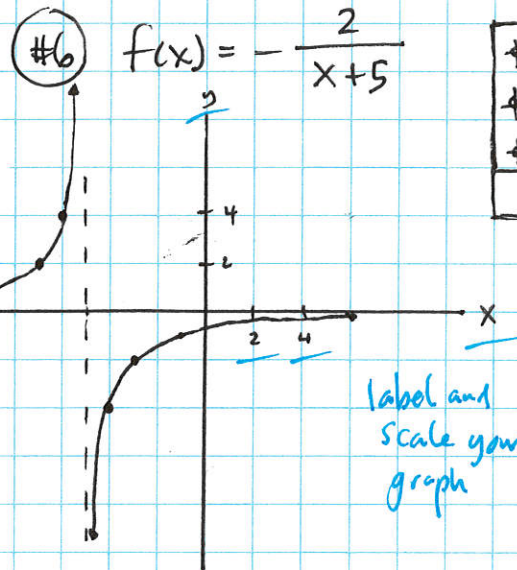 #6 f(x) = - 2/(x+5)
y
4
2
2 4
X
label and
scale your
graph